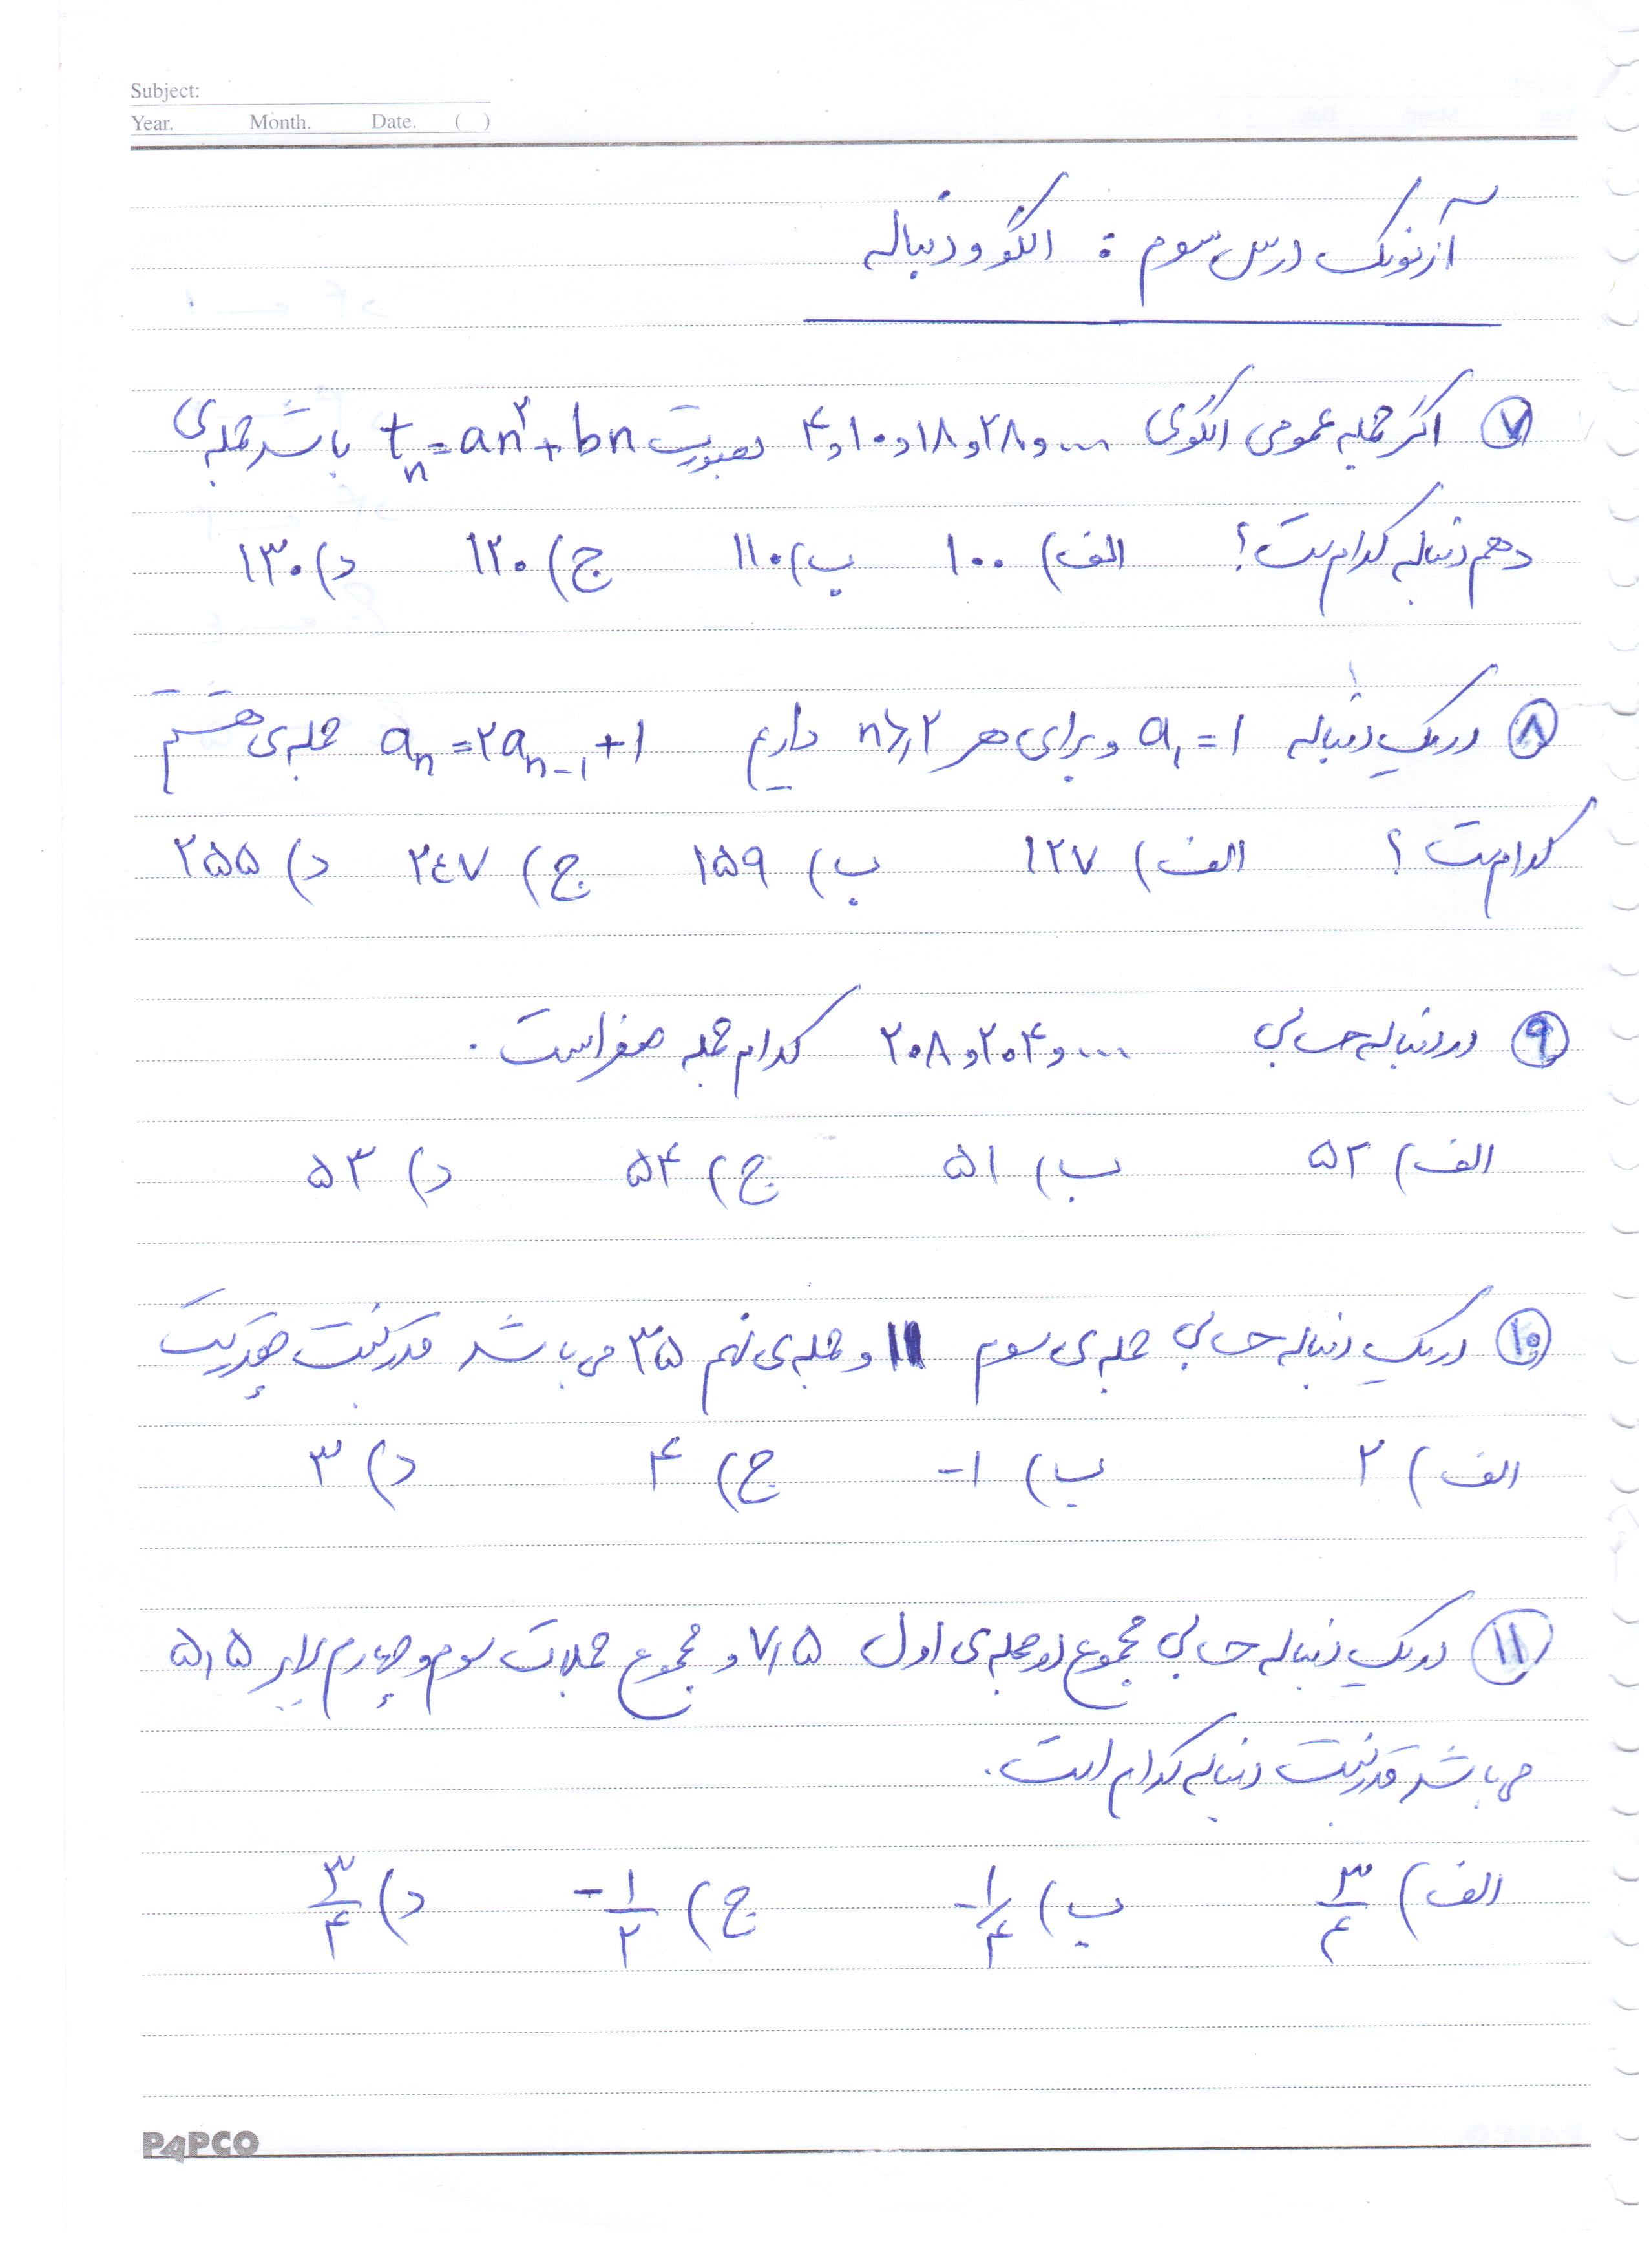 Subject:
Year. Month. Date. ( )
آزمونک درس سوم : الگو و دنباله
۷ اگر جمله عمومی الگوی ۴ و ۱۰ و ۱۸ و ۲۸ و ... بصورت tₙ = an² + bn باشد جمله‌ی
دهم دنباله کدام است؟ الف) ۱۰۰ ب) ۱۱۰ ج) ۱۲۰ د) ۱۳۰
۸ در یک دنباله a₁ = ۱ و برای هر n ≥ ۲ داریم aₙ = ۲aₙ₋₁ + ۱ جمله‌ی هشتم
کدام است ؟ الف) ۱۲۷ ب) ۱۵۹ ج) ۲۴۷ د) ۲۵۵
۹ در دنباله حسابی ۲۰۸ و ۲۰۴ و ... کدام جمله صفر است .
الف) ۵۲ ب) ۵۱ ج) ۵۴ د) ۵۳
۱۰ در یک دنباله حسابی جمله‌ی سوم ۱۱ و جمله‌ی نهم ۳۵ می باشد قدر نسبت چقدر است
الف) ۲ ب) ۱- ج) ۴ د) ۳
۱۱ در یک دنباله حسابی مجموع دو جمله‌ی اول ۷,۵ و مجموع جملات سوم و چهارم برابر ۵,۵
می باشد قدر نسبت دنباله کدام است.
الف) ۳/۴ ب) -۱/۴ ج) -۱/۲ د) ۳/۴
PAPCO